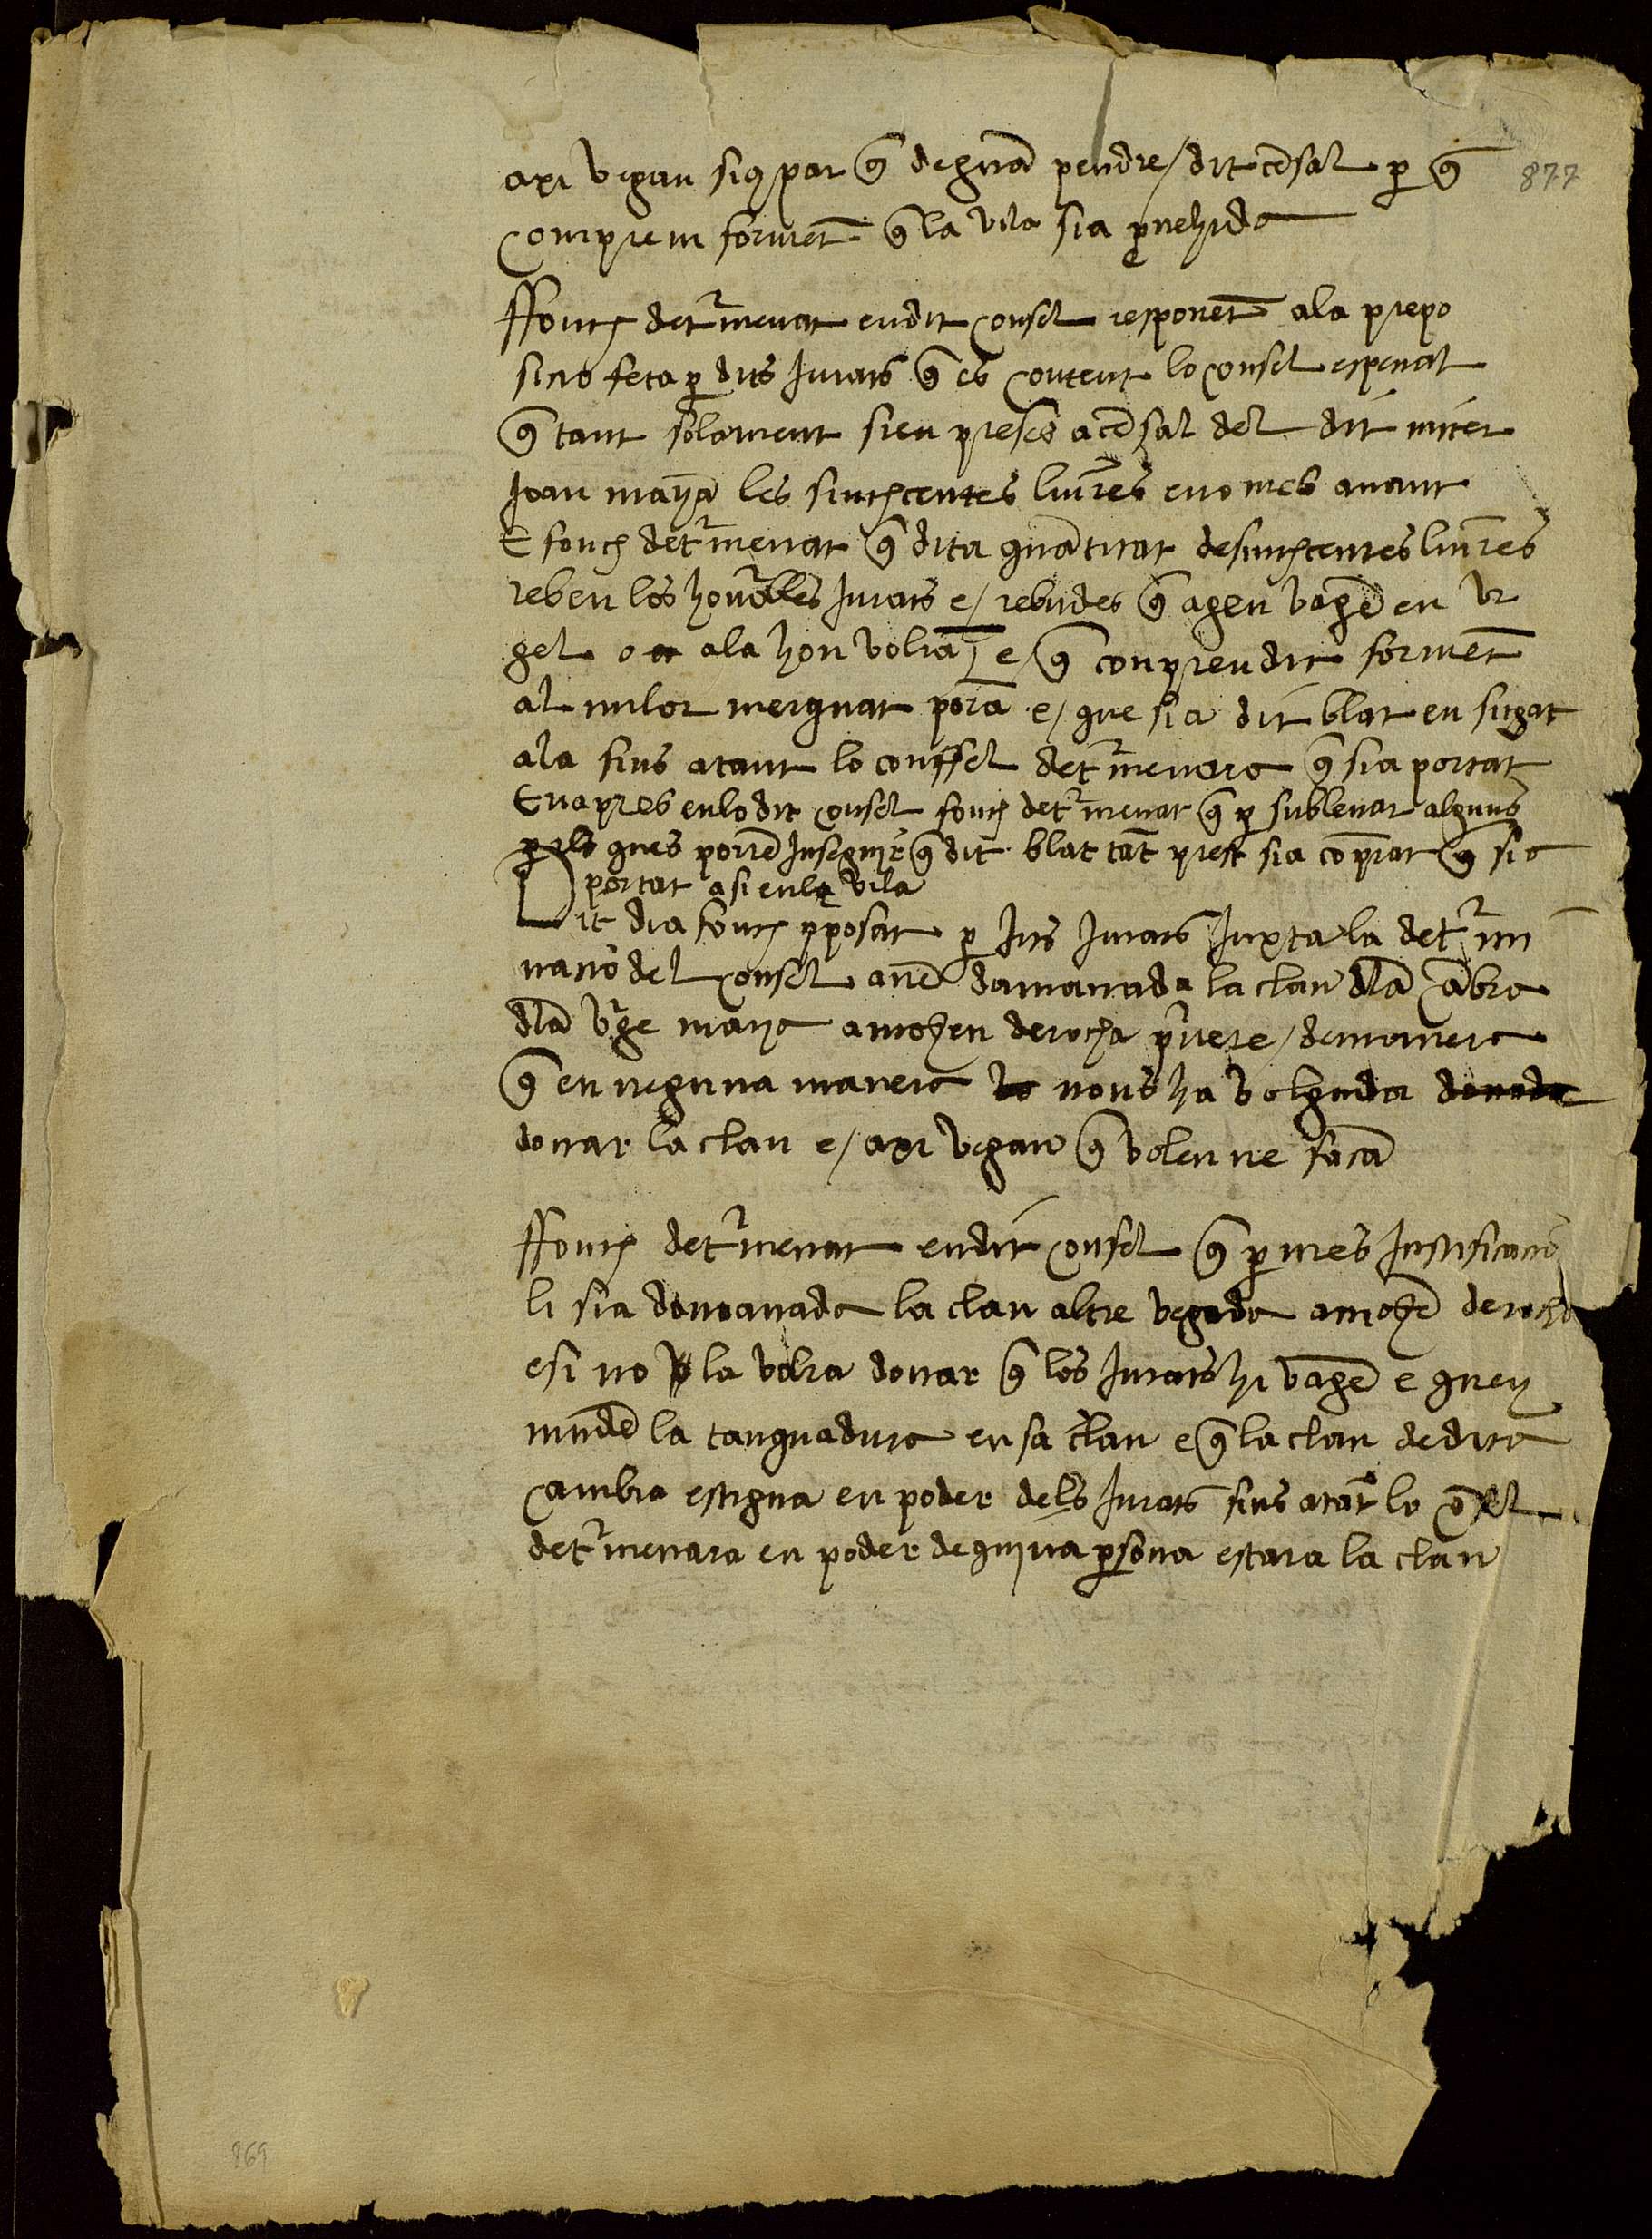 axi vegan sius par q̃ deguã pendre / dit cẽsal p̱ q̃ 877
comprem formẽt q̃ la vila sia p̱uehida
ffonch det̃menat en dit consel responẽt a la prepo
sicio feta p̱ dits Jurats q̃ es content lo consel espenal
q̃ tant solament sien preses a cẽsal del dit micer
Joan mayã les sinchcentes liures e no mes auant
E fonch det̃menat q̃ dita quãtitat de sinchcentes liures
reben los honõbles Jurats e / rebudes q̃ agen vagẽ en vr
gel o a la hon volrã e / q̃ conpren dit formẽt
al millor merquat porã e / que sia dit blat en sitgat
ala fins atant lo conssel det̃menara q̃ sia portat
En apres en lo dit consel fonch det̃menat q̃ p̱ subleuar alguns
p̱ils ques porrẽ Inseguir q̃ dit blat tãt prest sia cõprat q̃ sia
portat asi en la vila
Dit dia fonch p̱posat p̱ dits Jurats Juxta la det̃mi
nasio del consel auẽ damanada la clau dla cãbra
dla vr̃ge maria a mossen de rocha p̱uere / de manera
q̃ en neguna manera nons ha volguda donada
donar la clau e / axi vegau q̃ volen ne façã
ffonch det̃menat en dit consel q̃ p̱ mes Justificacio
li sia demanada la clau altre vegada a mossẽ de rocha
e si no la volra donar q̃ los Jurats hi vagẽ e quey
mudẽ la tanquadura en sa clau e q̃ la clau de dita
cambra estigua en poder dels Jurats fins atãt lo cõsel
det̃menara en poder de quina p̱sona estara la clau
869